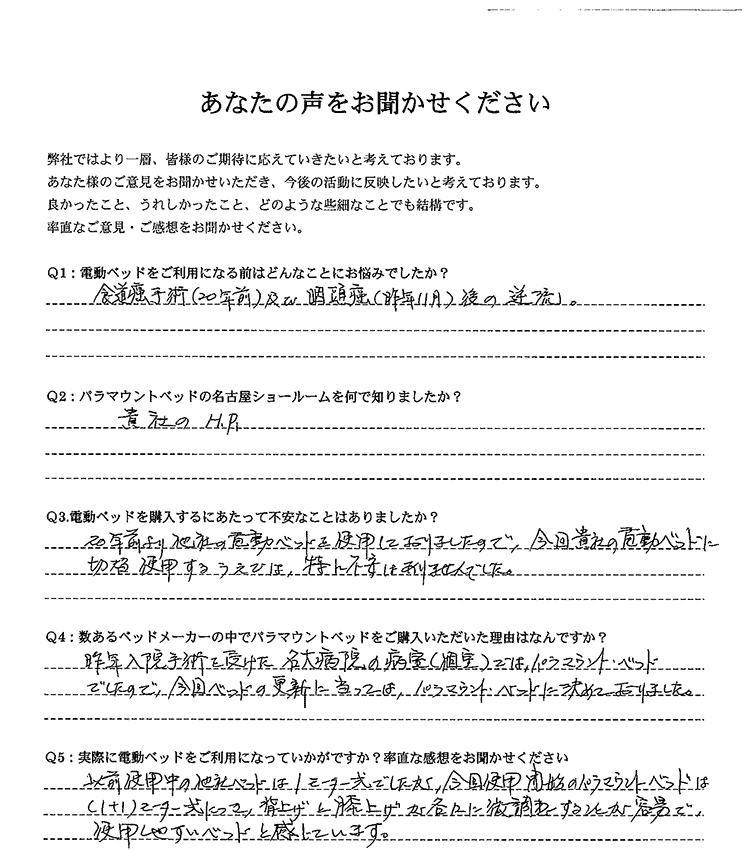 あなたの声をお聞かせください
弊社ではより一層、皆様のご期待に応えていきたいと考えております。
あなた様のご意見をお聞かせいただき、今後の活動に反映したいと考えております。
良かったこと、うれしかったこと、どのような些細なことでも結構です。
率直なご意見・ご感想をお聞かせください。
Q1：電動ベッドをご利用になる前はどんなことにお悩みでしたか？
食道癌手術(20年前)及び咽頭癌(昨年11月)後の逆流」。
Q2：パラマウントベッドの名古屋ショールームを何で知りましたか？
貴社の H.P.
Q3.電動ベッドを購入するにあたって不安なことはありましたか？
20年前より他社の電動ベッドを使用しておりましたので、今回貴社の電動ベッドに
切替使用するうえでは、特に不安は有りませんでした。
Q4：数あるベッドメーカーの中でパラマウントベッドをご購入いただいた理由はなんですか？
昨年入院手術を受けた名大病院の病室(個室)では、パラマウント・ベッド
でしたので、今回ベッドの更新に当っては、パラマウント・ベッドに決めておりました。
Q5：実際に電動ベッドをご利用になっていかがですか？率直な感想をお聞かせください
以前使用中の他社ベッドは1モーター式でしたが、今回使用開始のパラマウントベッドは
(1+1)モーター式になって、背上げと膝上げが各々に微調整することが容易で、
使用しやすいベッドと感じています。